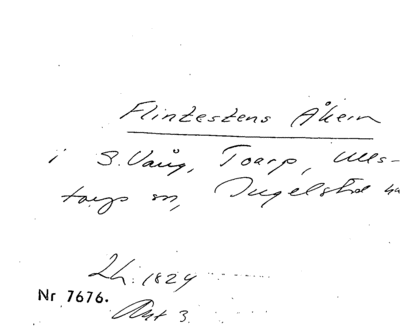 Flintestens Åkern
i S. Vång, Toarp, Ulls-
torps sn, Ingelstad hd
Lh. 1824
Nr 7676.
Akt 3.